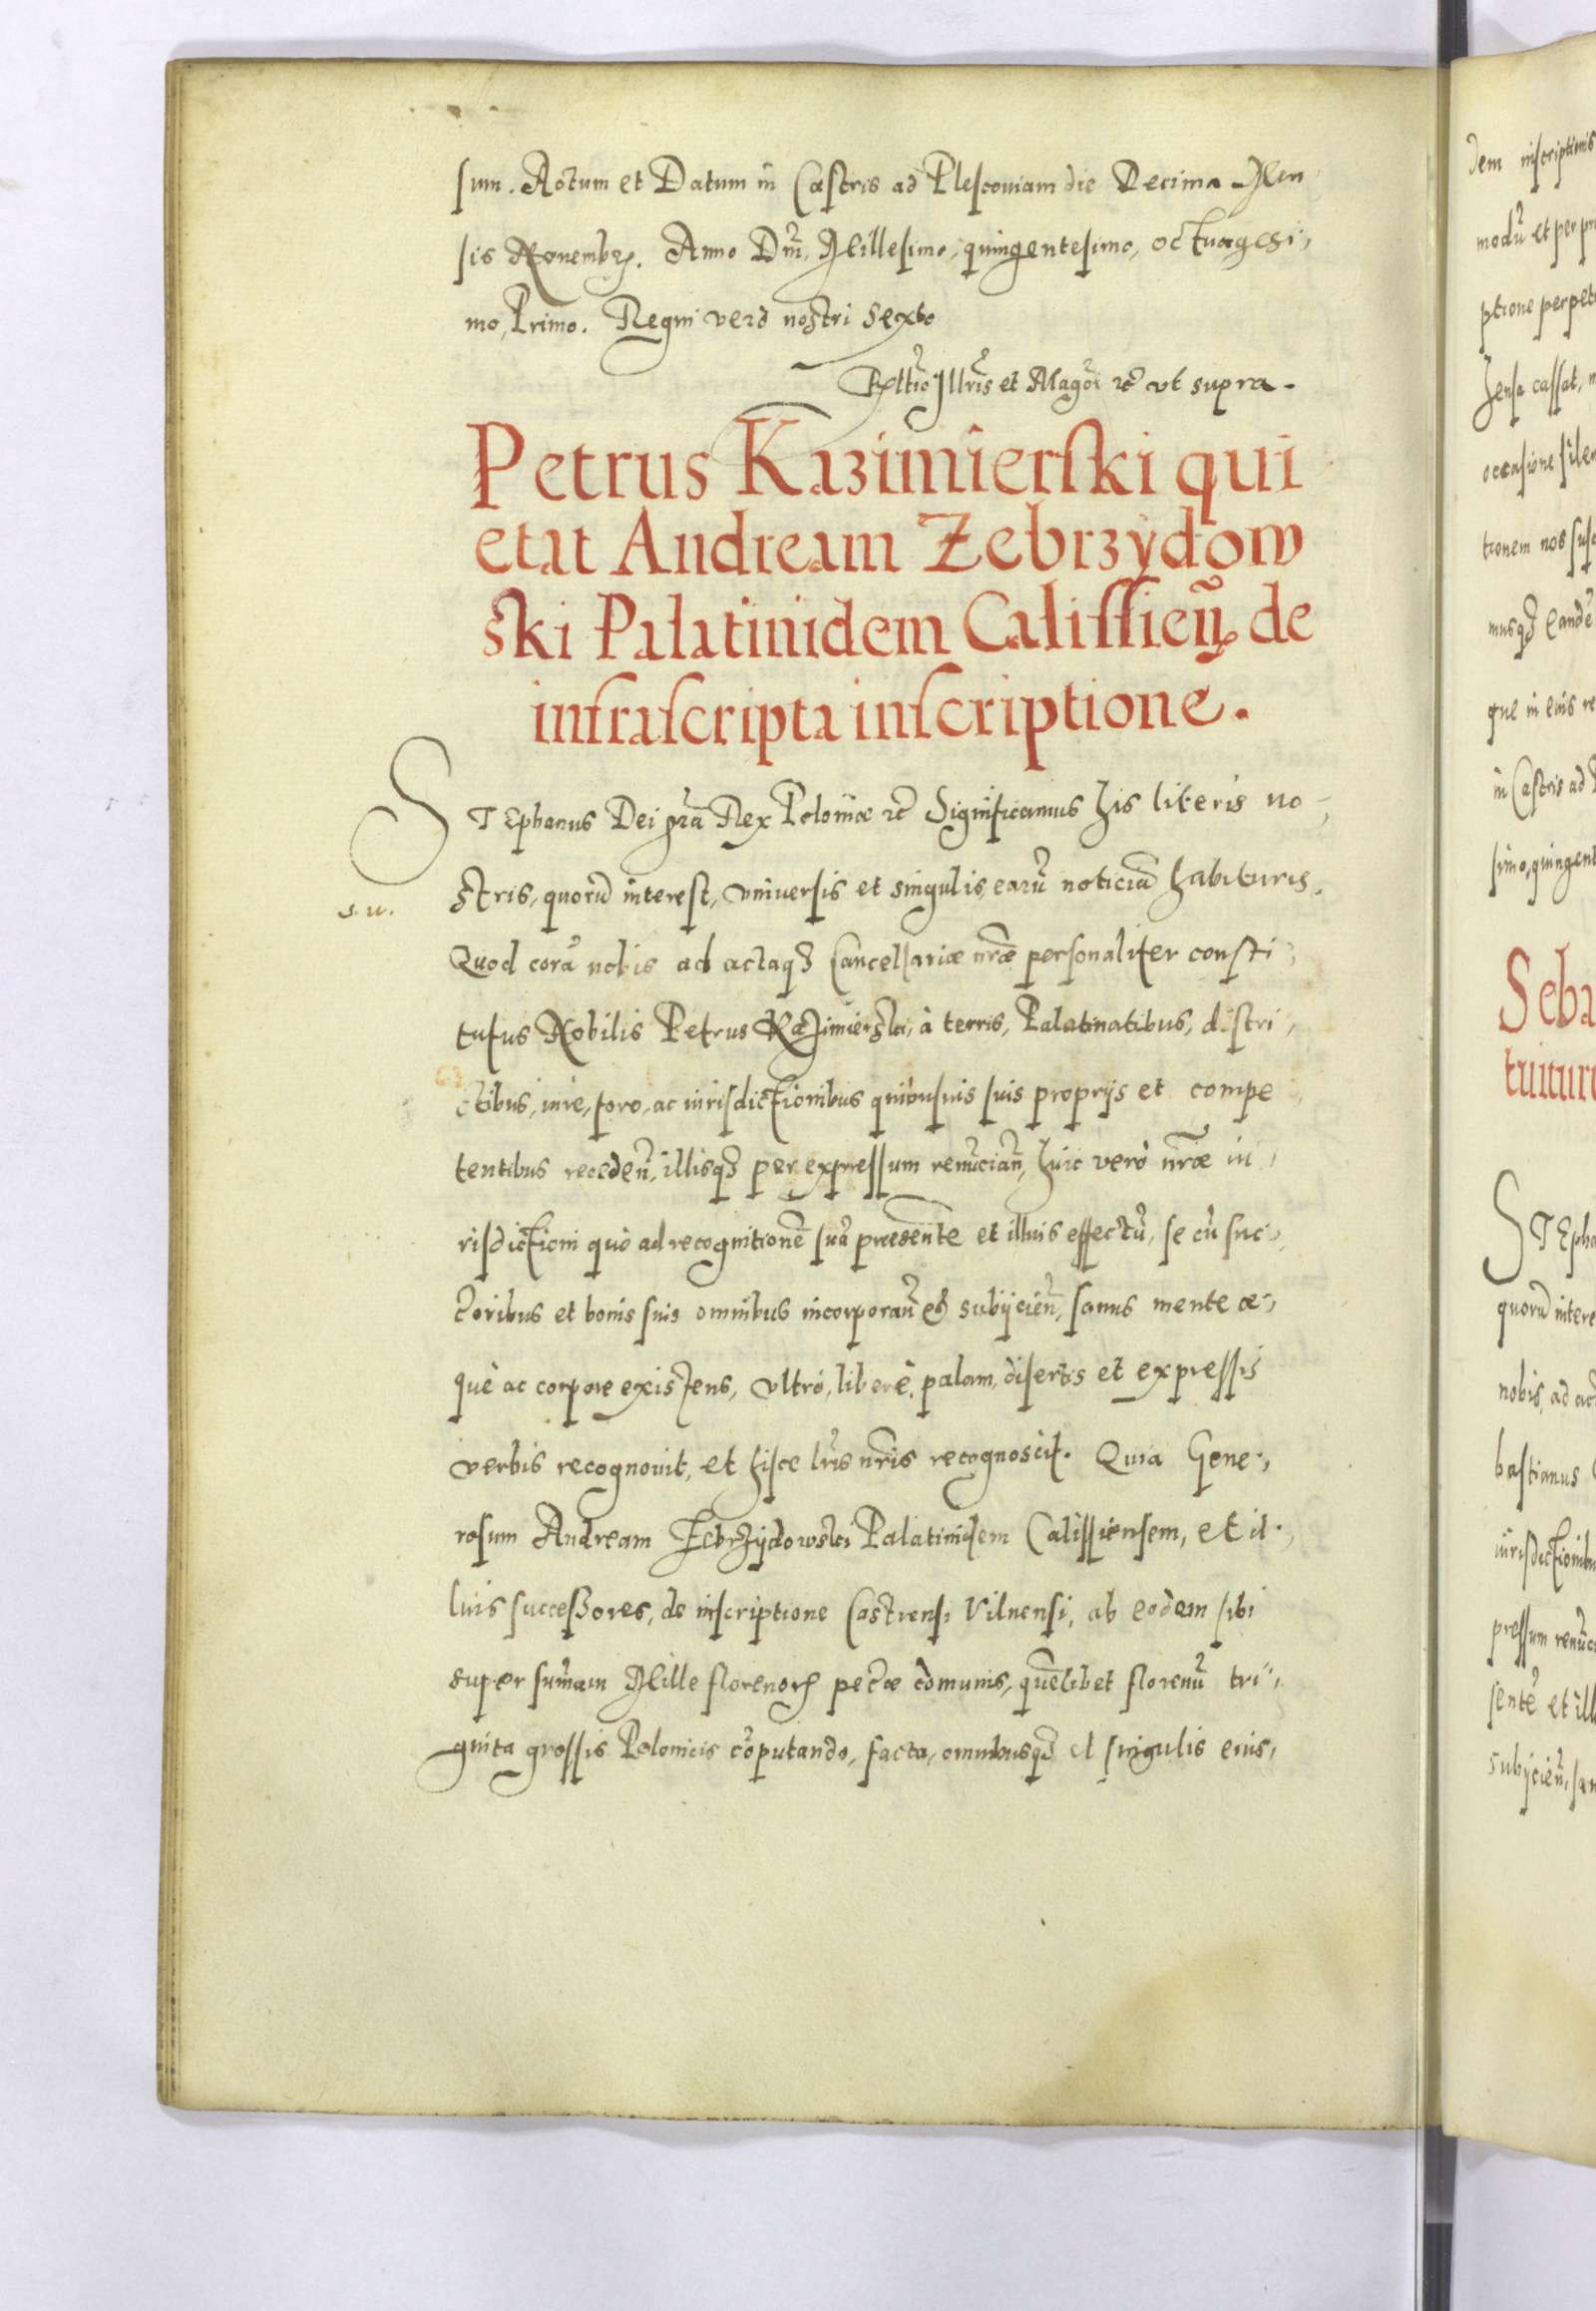 sum. Actum et Datum in Castris ad Plescouiam die Decima Men
sis Nouembrꝭ. Anno Dm̃. Millesimo, quingentesimo, octuagesi,
mo, Primo. Regni verò nostri Sexto
Illr̃is et Magc̃i ꝛc̃ vt supra.
Petrus Kazimierski qui
etat Andream Zebrzÿdow
ski Palatinidem Calissieñ. de
infrascripta inscriptione.
STEphanus Dei gr̃a Rex Poloniæ ꝛc̃ Significamus his literis no,
s. u.
stris, quorũ interest, vniuersis et singulis, earũ noticiã habituris.
Quod corã nobis ad actaqꝫ Cancellariæ nr̃æ personaliter consti,
tutus Nobilis Petrus Kazimierski, à terris, Palatinatibus, distri,
ctibus, iure, foro, ac iurisdictionibus quibusuis suis proprijs et compe,
tentibus recedeñ, illisqꝫ per expressum renũciañ, huic verò nr̃æ iu,
risdictioni quò ad recognitionẽ suã præsentẽ et illius effectũ, se cũ suc,
c̃oribus et bonis suis omnibus incorporañ et subijcieñ, sanus mente æ,
què ac corpore existens, vltrò, liberè, palam, disertis et expressis
verbis recognouit, et hisce lr̃is nr̃is recognoscit. Quia Gene,
rosum Andream Zebrzÿdowski Palatinidem Calissiensem, et il,
lius successores, de inscriptione Castrensi Vilnensi, ab eodem sibi
super sum̃am Mille florenorꝭ pec̃æ com̃unis, quẽlibet florenũ tri,
ginta grossis Polonicis cõputando, facta, omnibusqꝫ et singulis eius,
dem inscriptionis
modũ et per
ptione perpet
hensa cassat,
occasione silen
tionem nos
musqꝫ eandẽ
que in eius re
in Castris ad
simo, quingent
Seba
tuitur
STEpha
quorũ intere
nobis, ad ac
bastianus
iurisdictionibu
pressum renũc
sentẽ et ill
subijcieñ, san